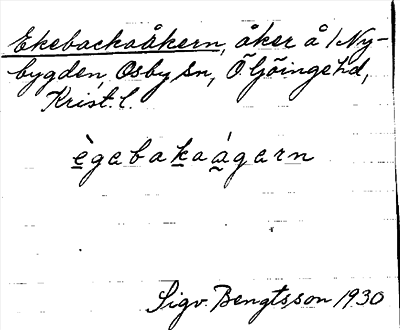 Ekebackaåkern, åker å 1 Ny-
bygden, Osby sn, Ö. Göinge hd,
Krist. l.
ègabakaágarn
Sigv. Bengtsson 1930